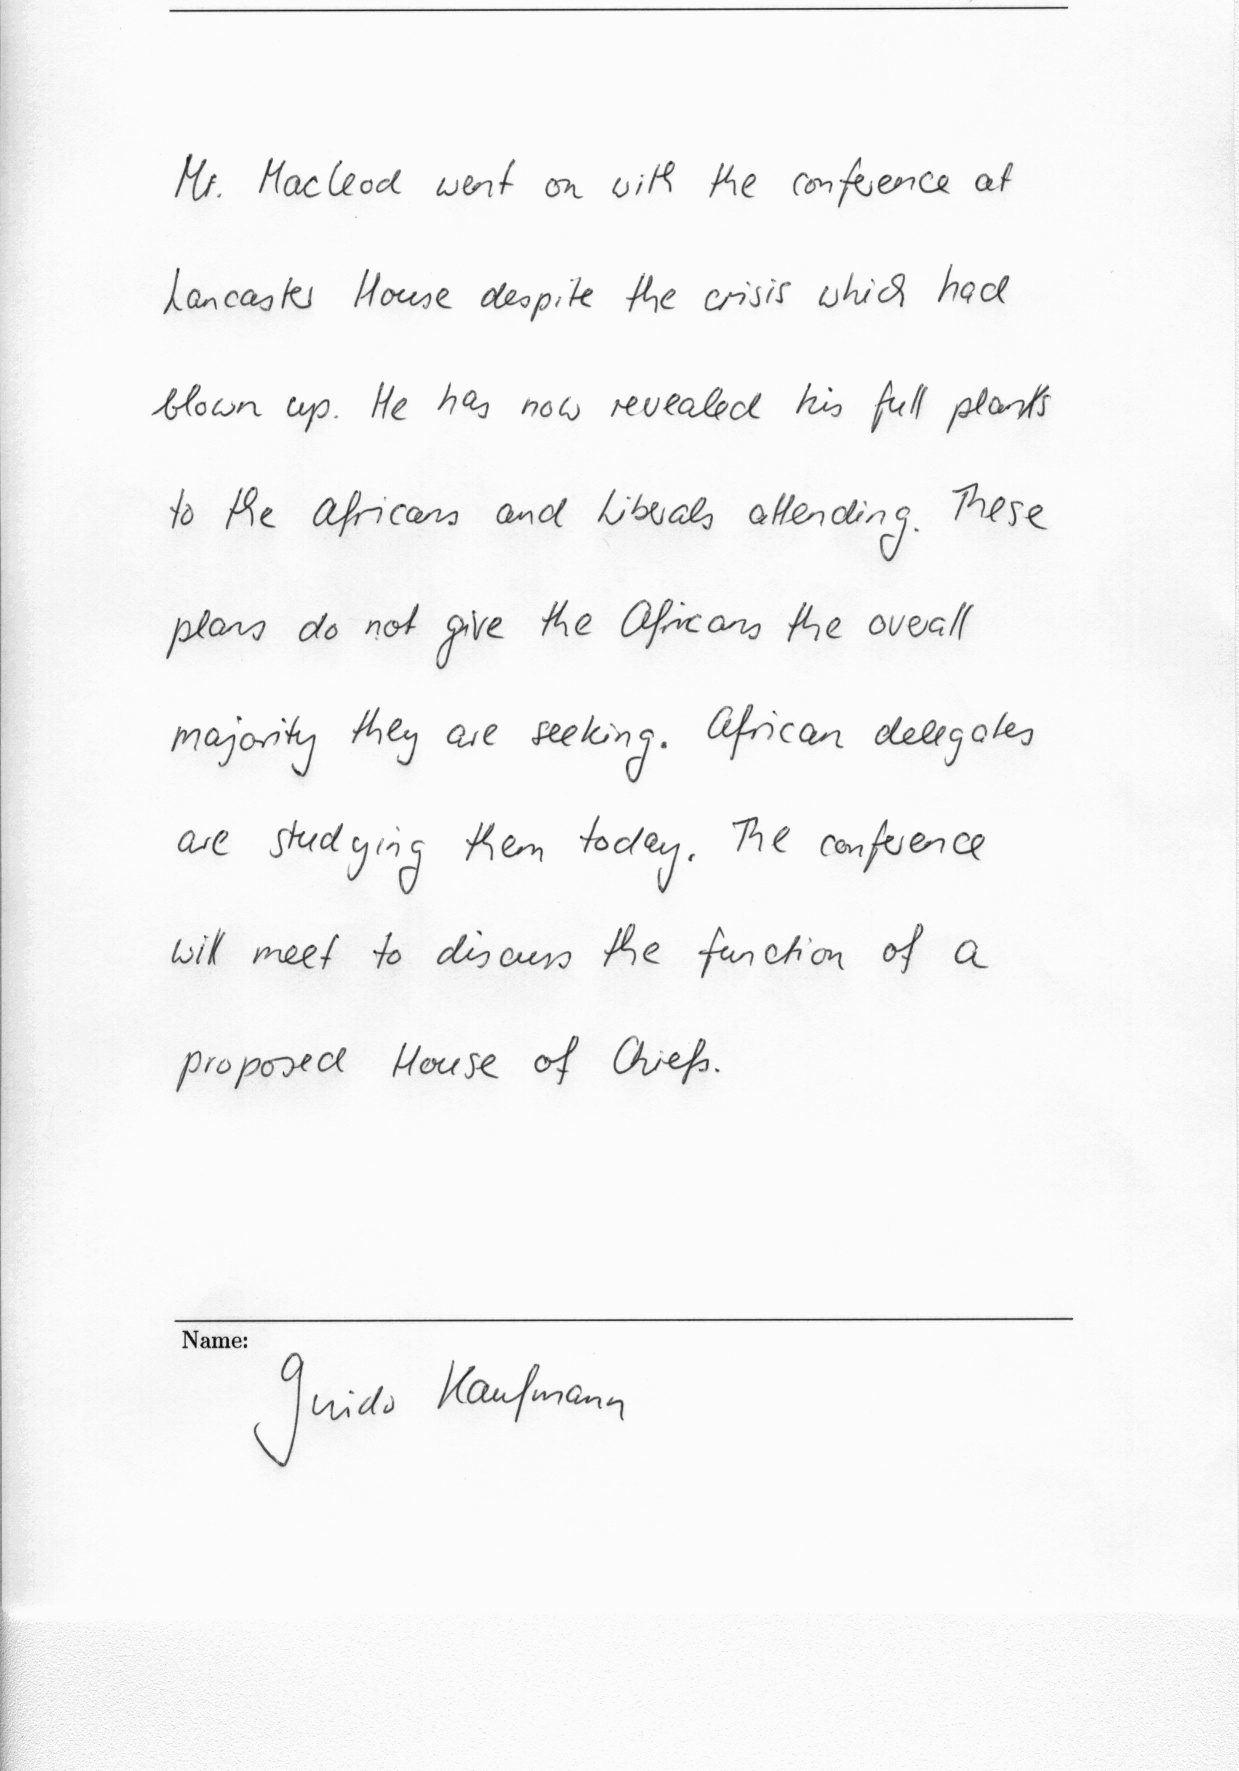 Mr. Macleod went on with the conference at
Lancaster House despite the crisis which had
blown up. He has now revealed his full plants
to the Africans and Liberals attending. These
plans do not give the Africans the overall
majority they are seeking. African delegates
are studying them today. The conference
will meet to discuss the function of a
proposed House of Chiefs.
Name:
Guido Kaufmann